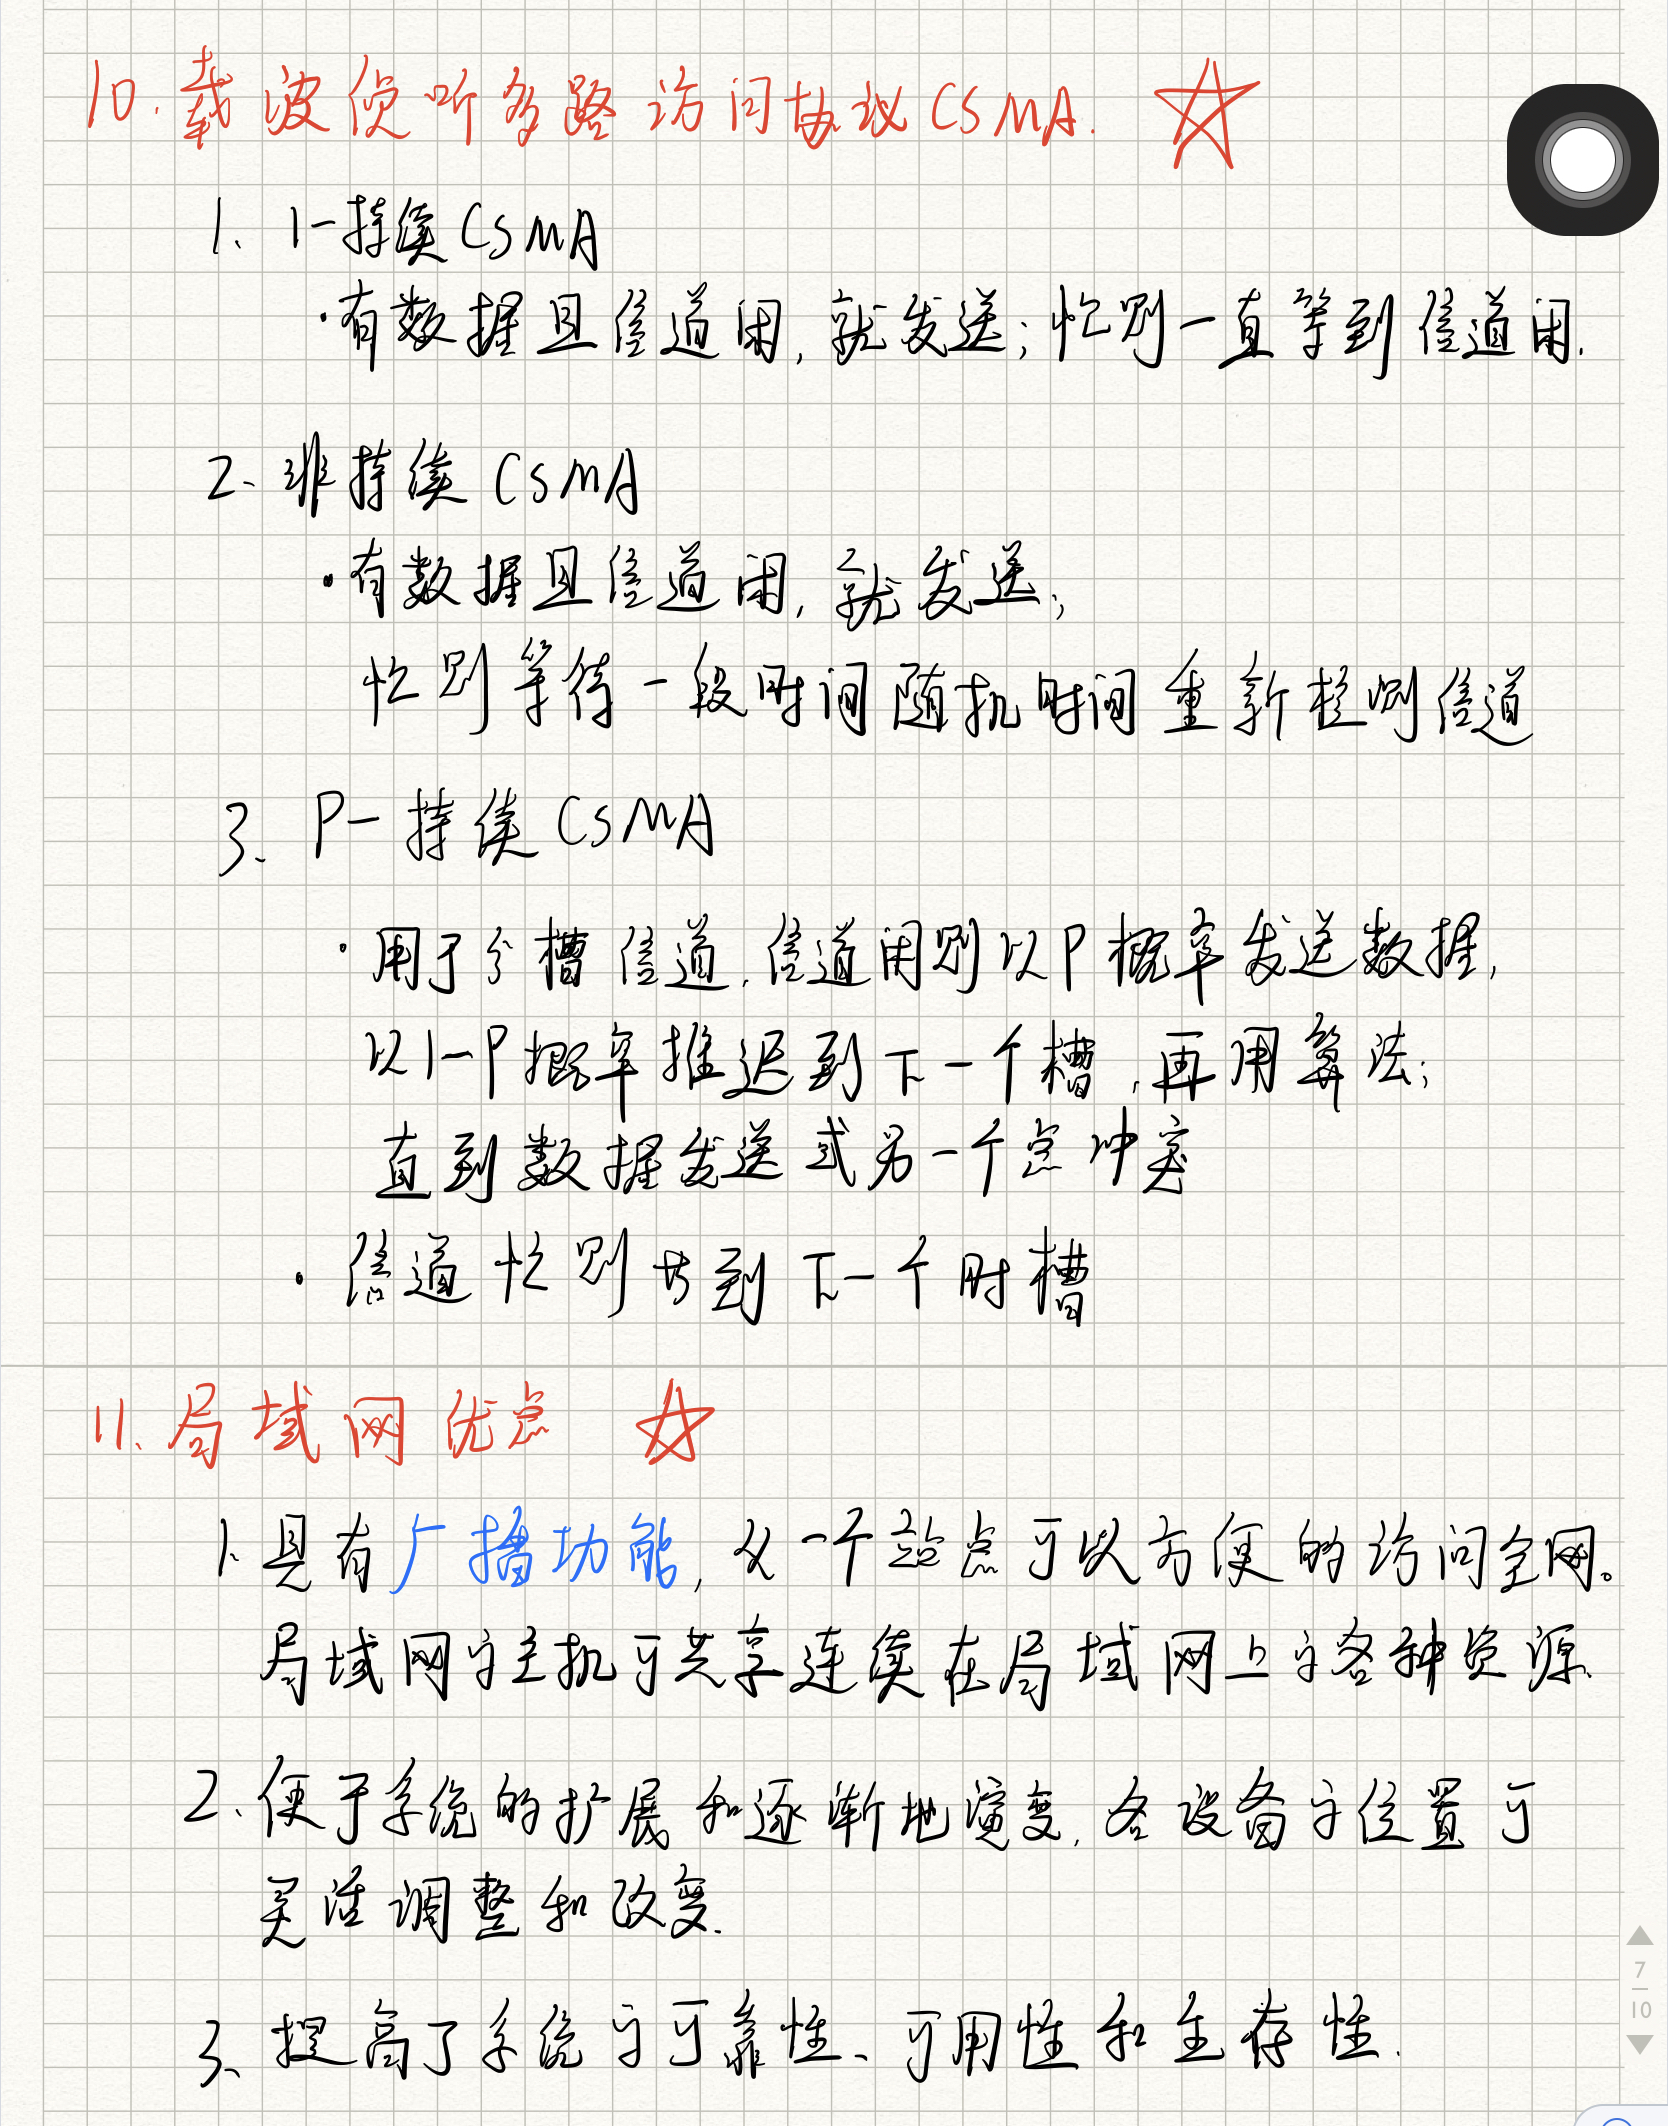 10. 载波侦听多路访问协议CSMA.
1、1-持续CSMA
·有数据且信道闲,就发送;忙则一直等到信道闲.
2、非持续CSMA
·有数据且信道闲,就发送;
忙则等待一段时间随机时间重新检测信道
3、P-持续CSMA
·用于分槽信道,信道闲则以P概率发送数据,
以1-P概率推迟到下一个槽,再用算法;
直到数据发送或另一个点冲突
·信道忙则转到下一个时槽
11、局域网优点
1、具有广播功能,从一个站点可以方便的访问全网。
局域网的主机可共享连续在局域网上的各种资源.
2、便于系统的扩展和逐渐地演变,各设备的位置可
灵活调整和改变.
3、提高了系统的可靠性、可用性和生存性.
7
10